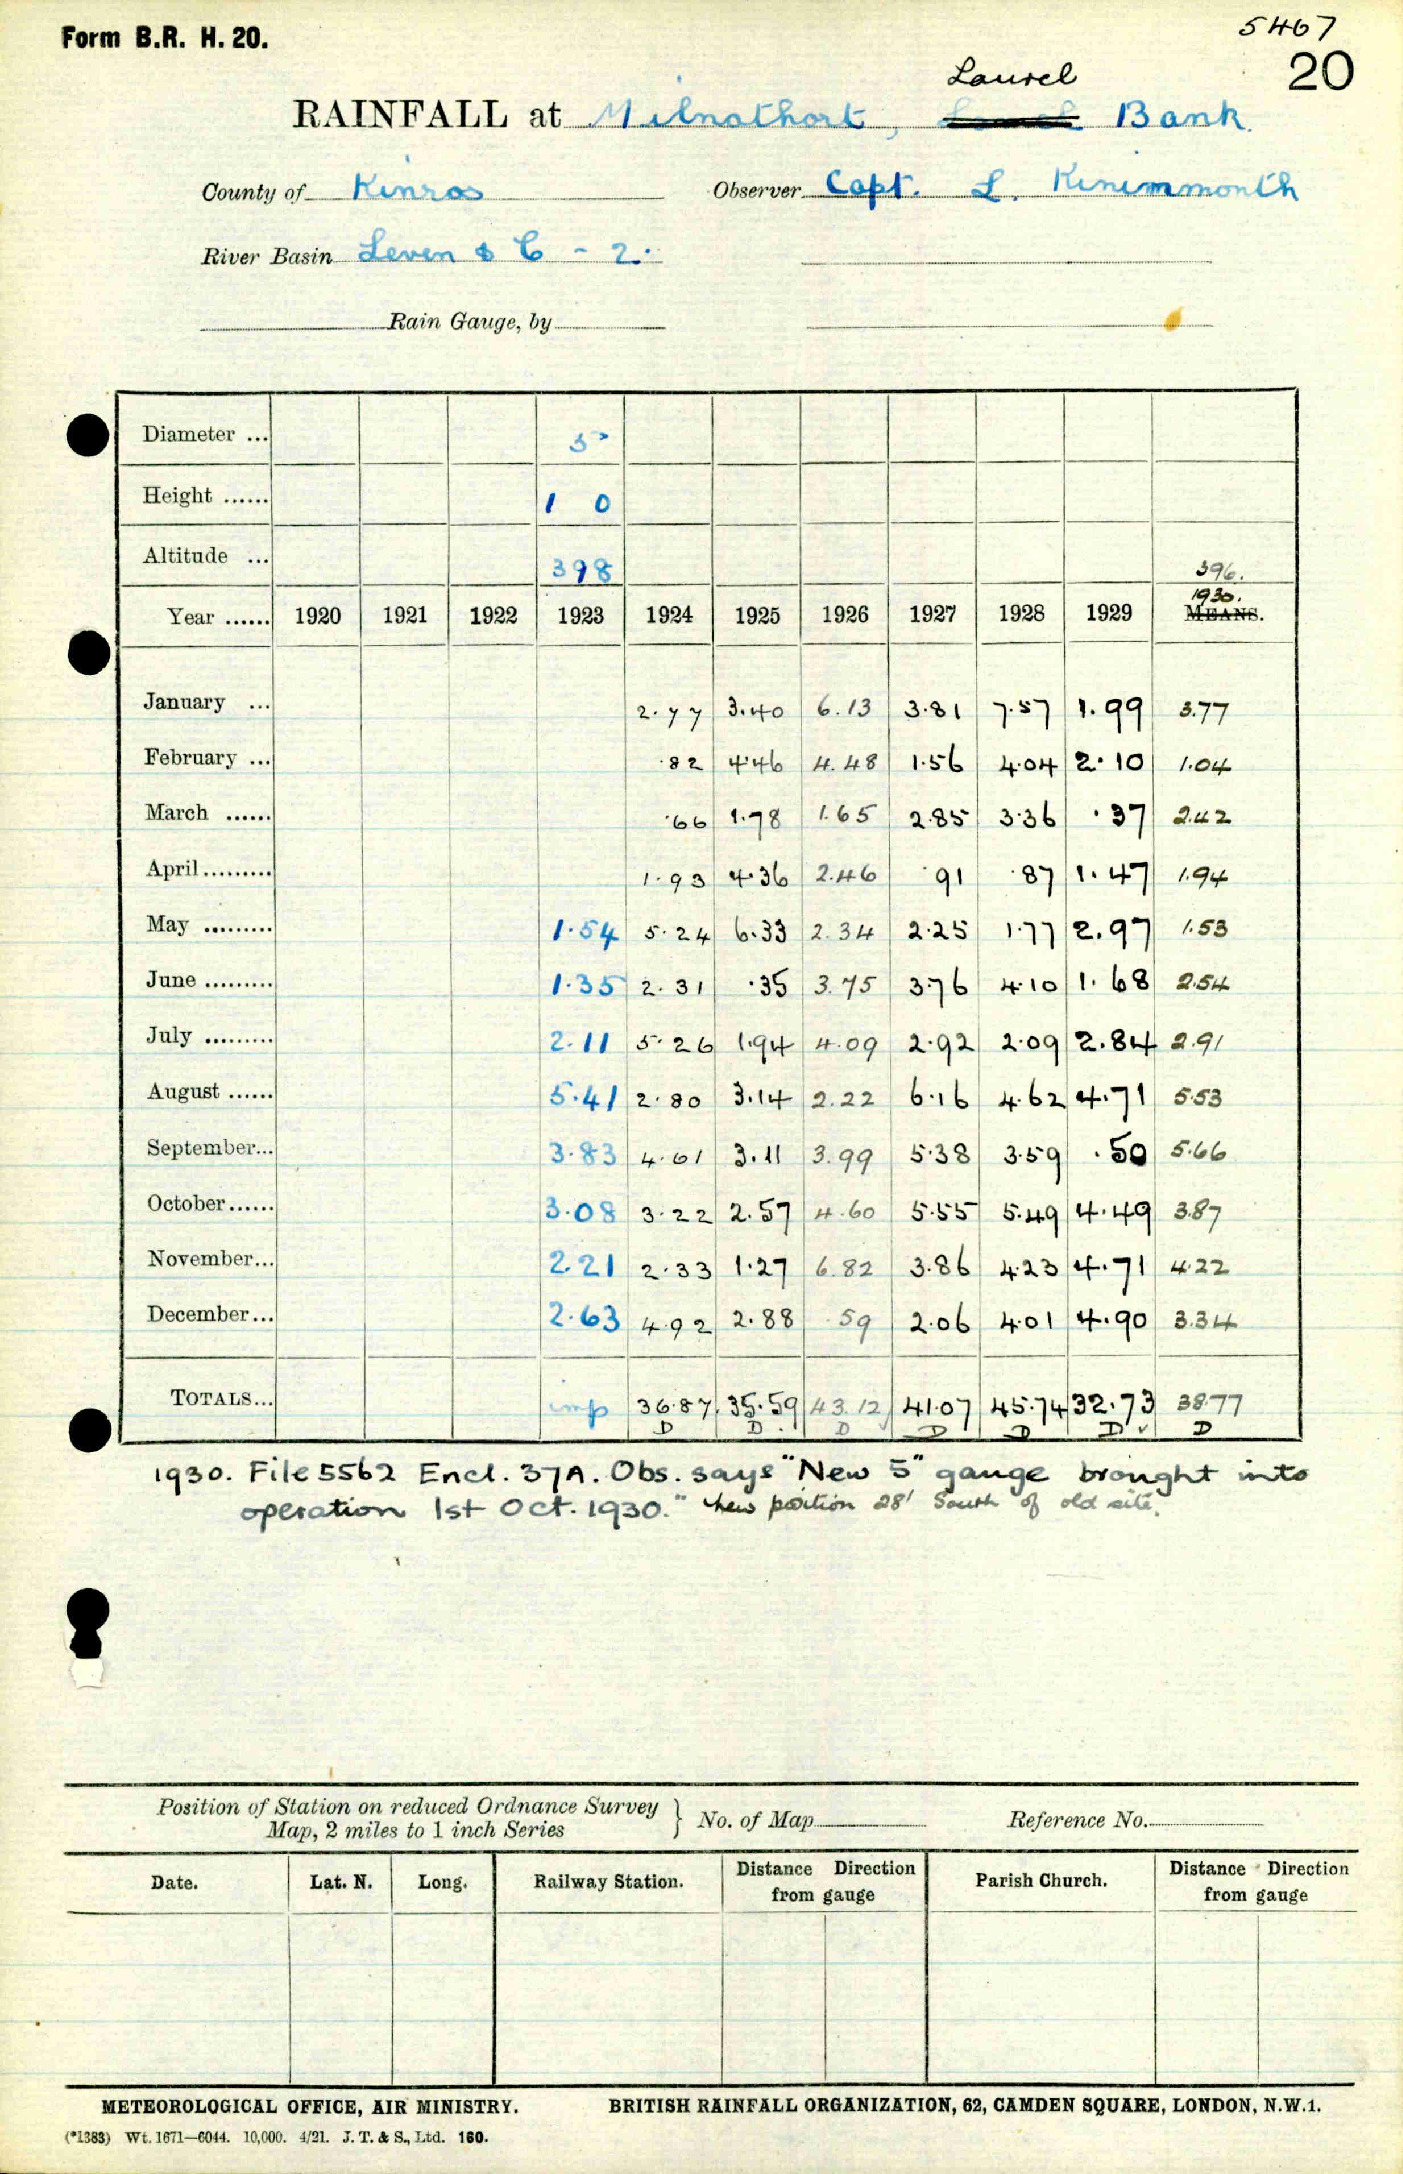 Form B.R. H. 20.
5467
20
Laurel
RAINFALL at Milnathort, Bank.
County of Kinross Observer Capt. L. Kinimmonth
River Basin Leven & C - 2.
Rain Gauge, by
Diameter ... 5"
Height ...... 1 0
Altitude ... 398 396.
1930.
Year ...... 1920 1921 1922 1923 1924 1925 1926 1927 1928 1929 MEANS.
January ... 2.77 3.40 6.13 3.81 7.57 1.99 3.77
February ... .82 4.46 4.48 1.56 4.04 2.10 1.04
March ...... .66 1.78 1.65 2.85 3.36 .37 2.42
April ......... 1.93 4.36 2.46 .91 .87 1.47 1.94
May ......... 1.54 5.24 6.33 2.34 2.25 1.77 2.97 1.53
June ......... 1.35 2.31 .35 3.75 3.76 4.10 1.68 2.54
July ......... 2.11 5.26 1.94 4.09 2.92 2.09 2.84 2.91
August ...... 5.41 2.80 3.14 2.22 6.16 4.62 4.71 5.53
September... 3.83 4.61 3.11 3.99 5.38 3.59 .50 5.66
October...... 3.08 3.22 2.57 4.60 5.55 5.49 4.49 3.87
November... 2.21 2.33 1.27 6.82 3.86 4.23 4.71 4.22
December... 2.63 4.92 2.88 .59 2.06 4.01 4.90 3.34
TOTALS... imp 36.87 35.59 43.12 41.07 45.74 32.73 38.77
D D D D D D D
1930. File 5562 Encl. 37A. Obs. says "New 5" gauge brought into
operation 1st Oct. 1930." New position 28' South of old site.
Position of Station on reduced Ordnance Survey
Map, 2 miles to 1 inch Series } No. of Map Reference No.
Date. Lat. N. Long. Railway Station. Distance Direction from gauge Parish Church. Distance Direction from gauge
METEOROLOGICAL OFFICE, AIR MINISTRY. BRITISH RAINFALL ORGANIZATION, 62, CAMDEN SQUARE, LONDON, N.W.1.
(*1383) Wt. 1671—6044. 10,000. 4/21. J. T. & S., Ltd. 160.